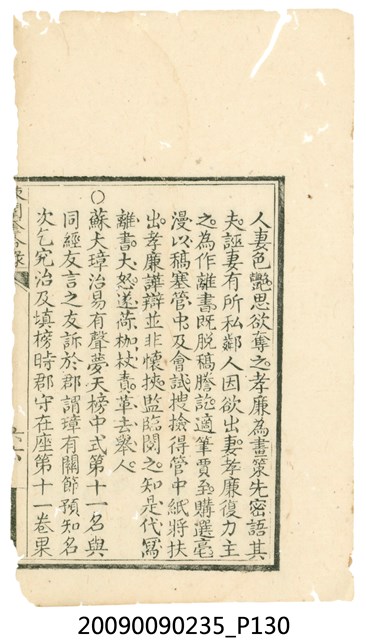 人妻色艷思欲奪之孝廉為畫策先密語其
夫誣妻有所私鄰人因欲出妻孝廉復力主
之為作離書既脫稿謄訖適筆賈到購選毫
漫以稿塞管中及會試搜撿得管中紙將扶
出孝廉譁辯並非懷挾監臨閱之知是代寫
離書大怒遂荷枷杖責革去舉人
○蘇大璋治易有聲夢天榜中式第十一名與
同經友言之友訴於郡謂璋有關節預知名
次乞究治及填榜時郡守在座第十一卷果
20090090235_P130